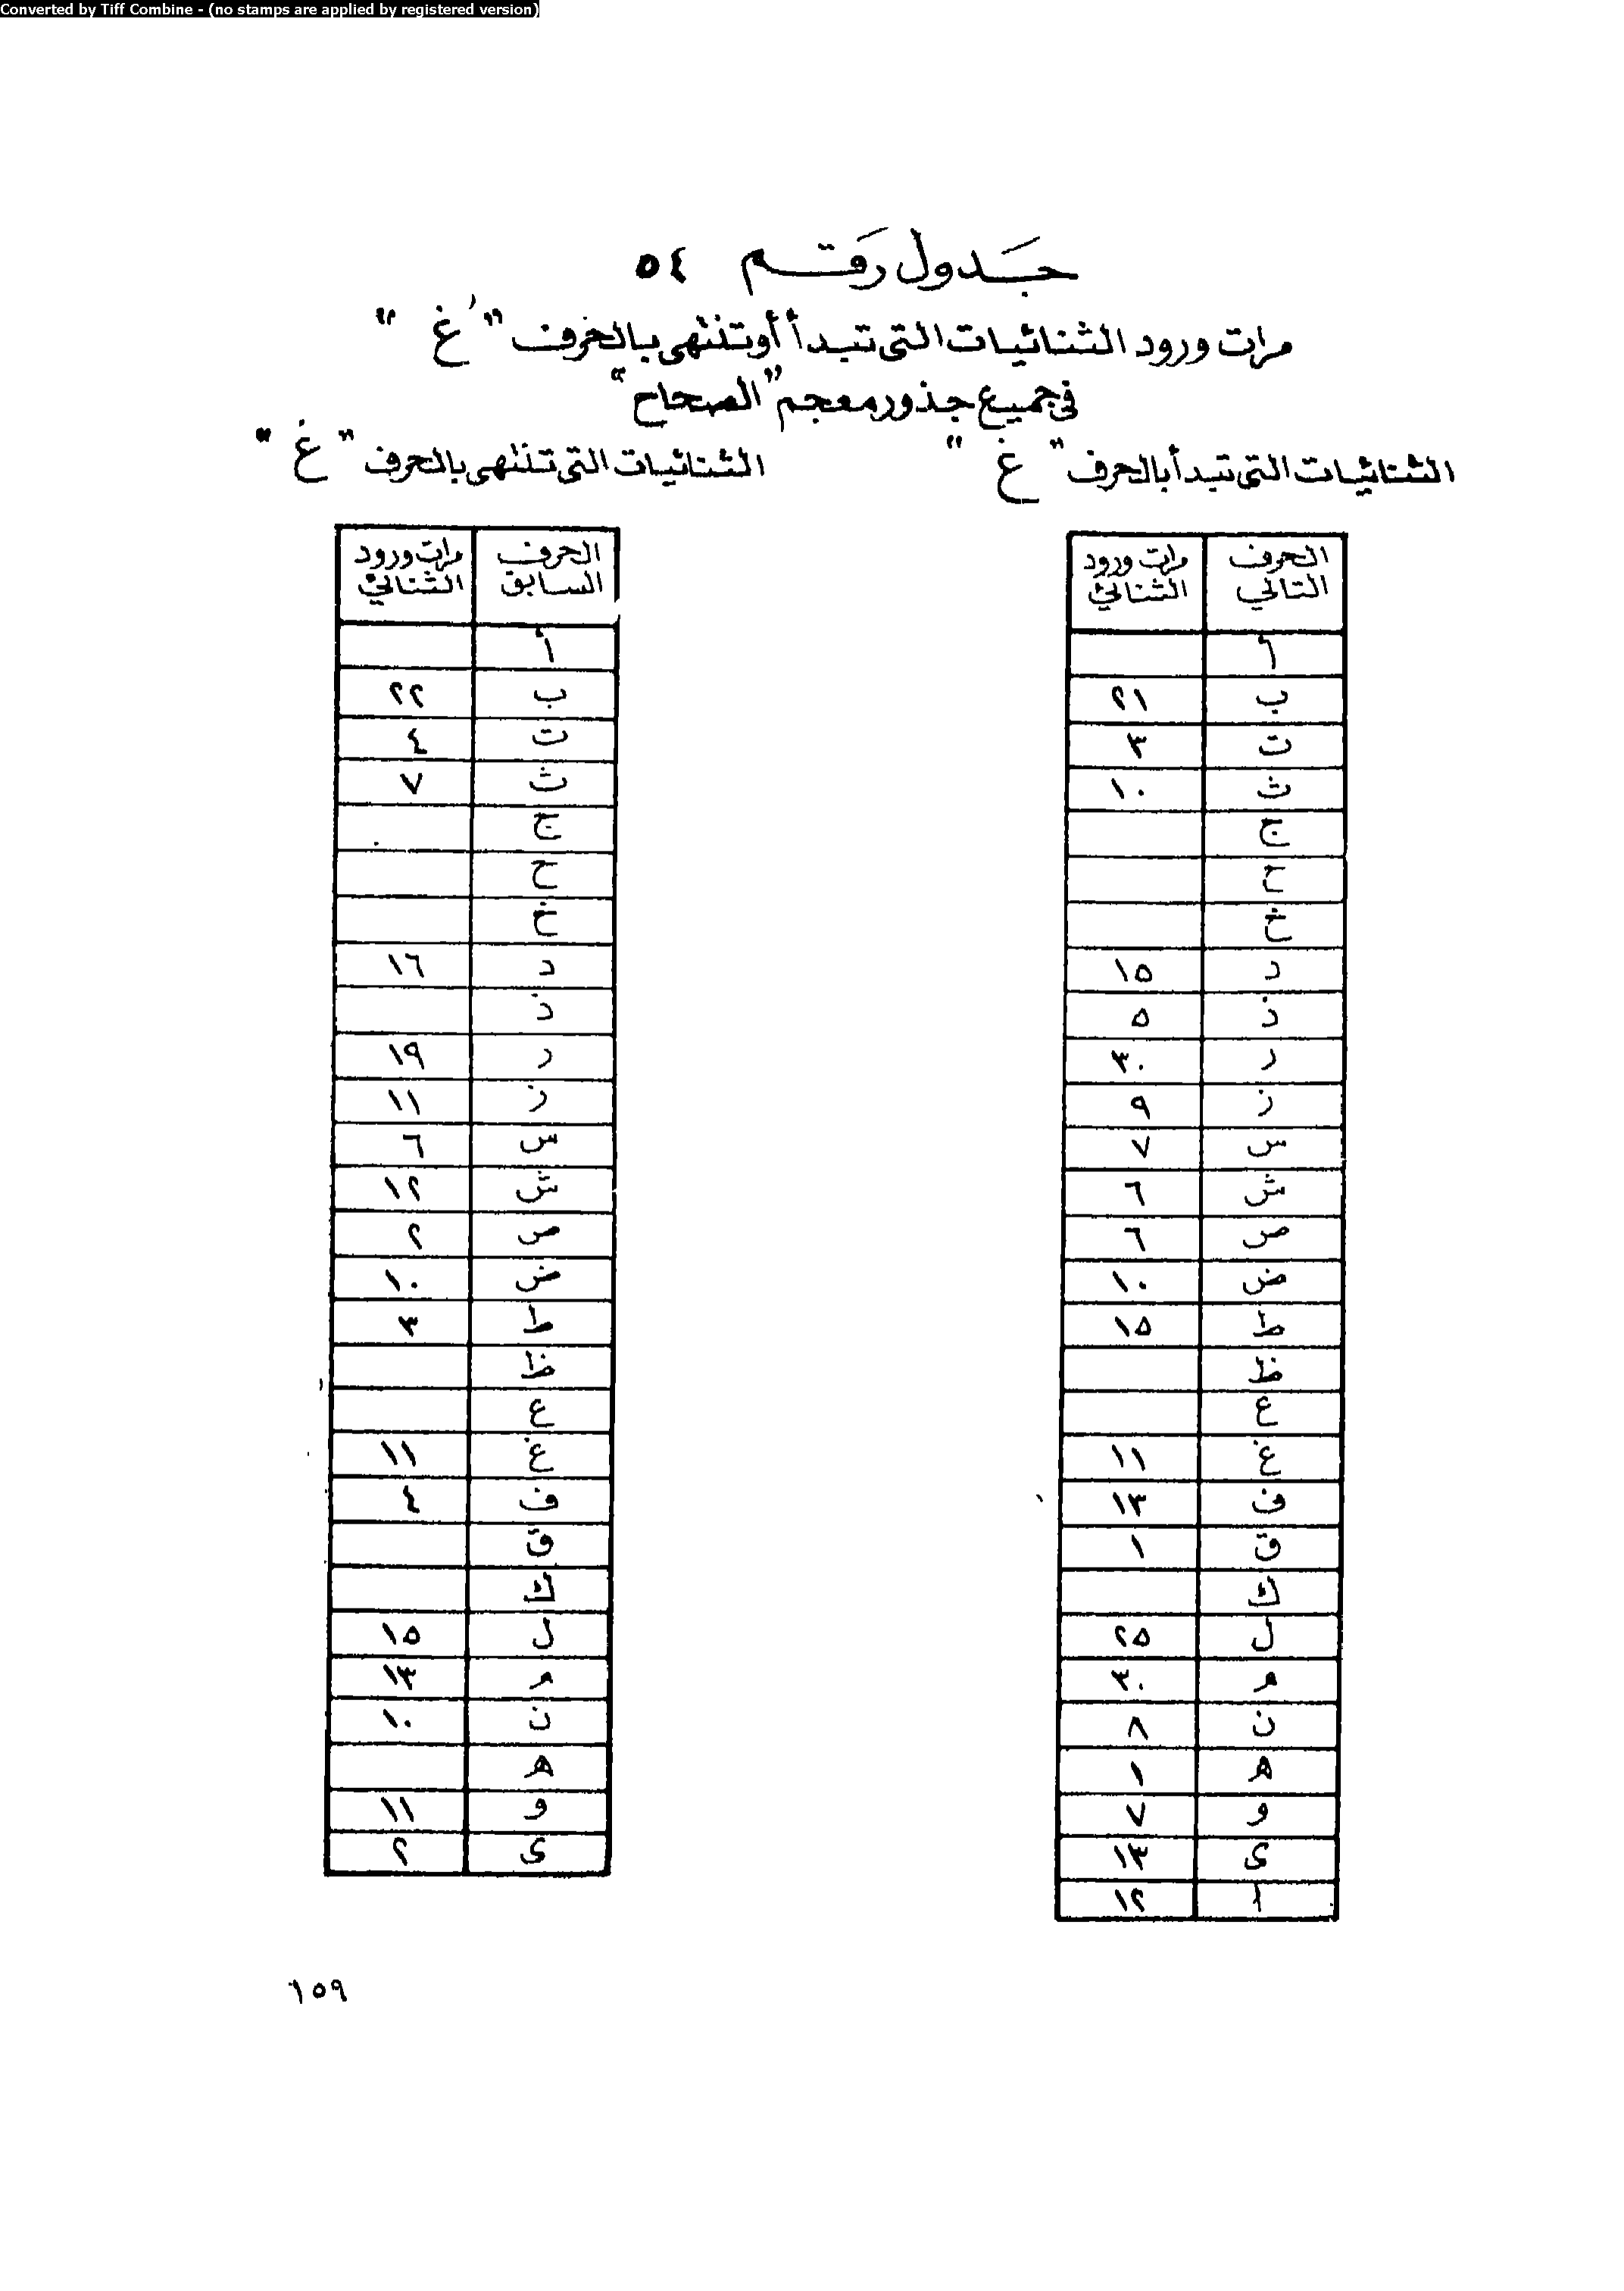 Converted by Tiff Combine - (no stamps are applied by registered version)
جَدول رَقم ٥٤
مرات ورود الثنائيات التى تبدأ أو تنتهى بالحرف "غ"
فى جميع جذور معجم "الصحاح"
الثنائيات التى تبدأ بالحرف "غ"
الحرف التالي | مرات ورود الثنائي
أ
ب ٢١
ت ٣
ث ١٠
ج
ح
خ
د ١٥
ذ ٥
ر ٣٠
ز ٩
س ٧
ش ٦
ص ٦
ض ١٠
ط ١٥
ظ
ع
غ ١١
ف ١٣
ق ١
ك
ل ٢٥
م ٣٠
ن ٨
ه ١
و ٧
ى ١٣
ا ١٢
الثنائيات التى تنتهى بالحرف "غ"
الحرف السابق | مرات ورود الثنائي
أ
ب ٢٢
ت ٤
ث ٧
ج
ح
خ
د ١٦
ذ
ر ١٩
ز ١١
س ٦
ش ١٢
ص ٢
ض ١٠
ط ٣
ظ
ع
غ ١١
ف ٤
ق
ك
ل ١٥
م ١٣
ن ١٠
ه
و ١١
ى ٢
١٥٩